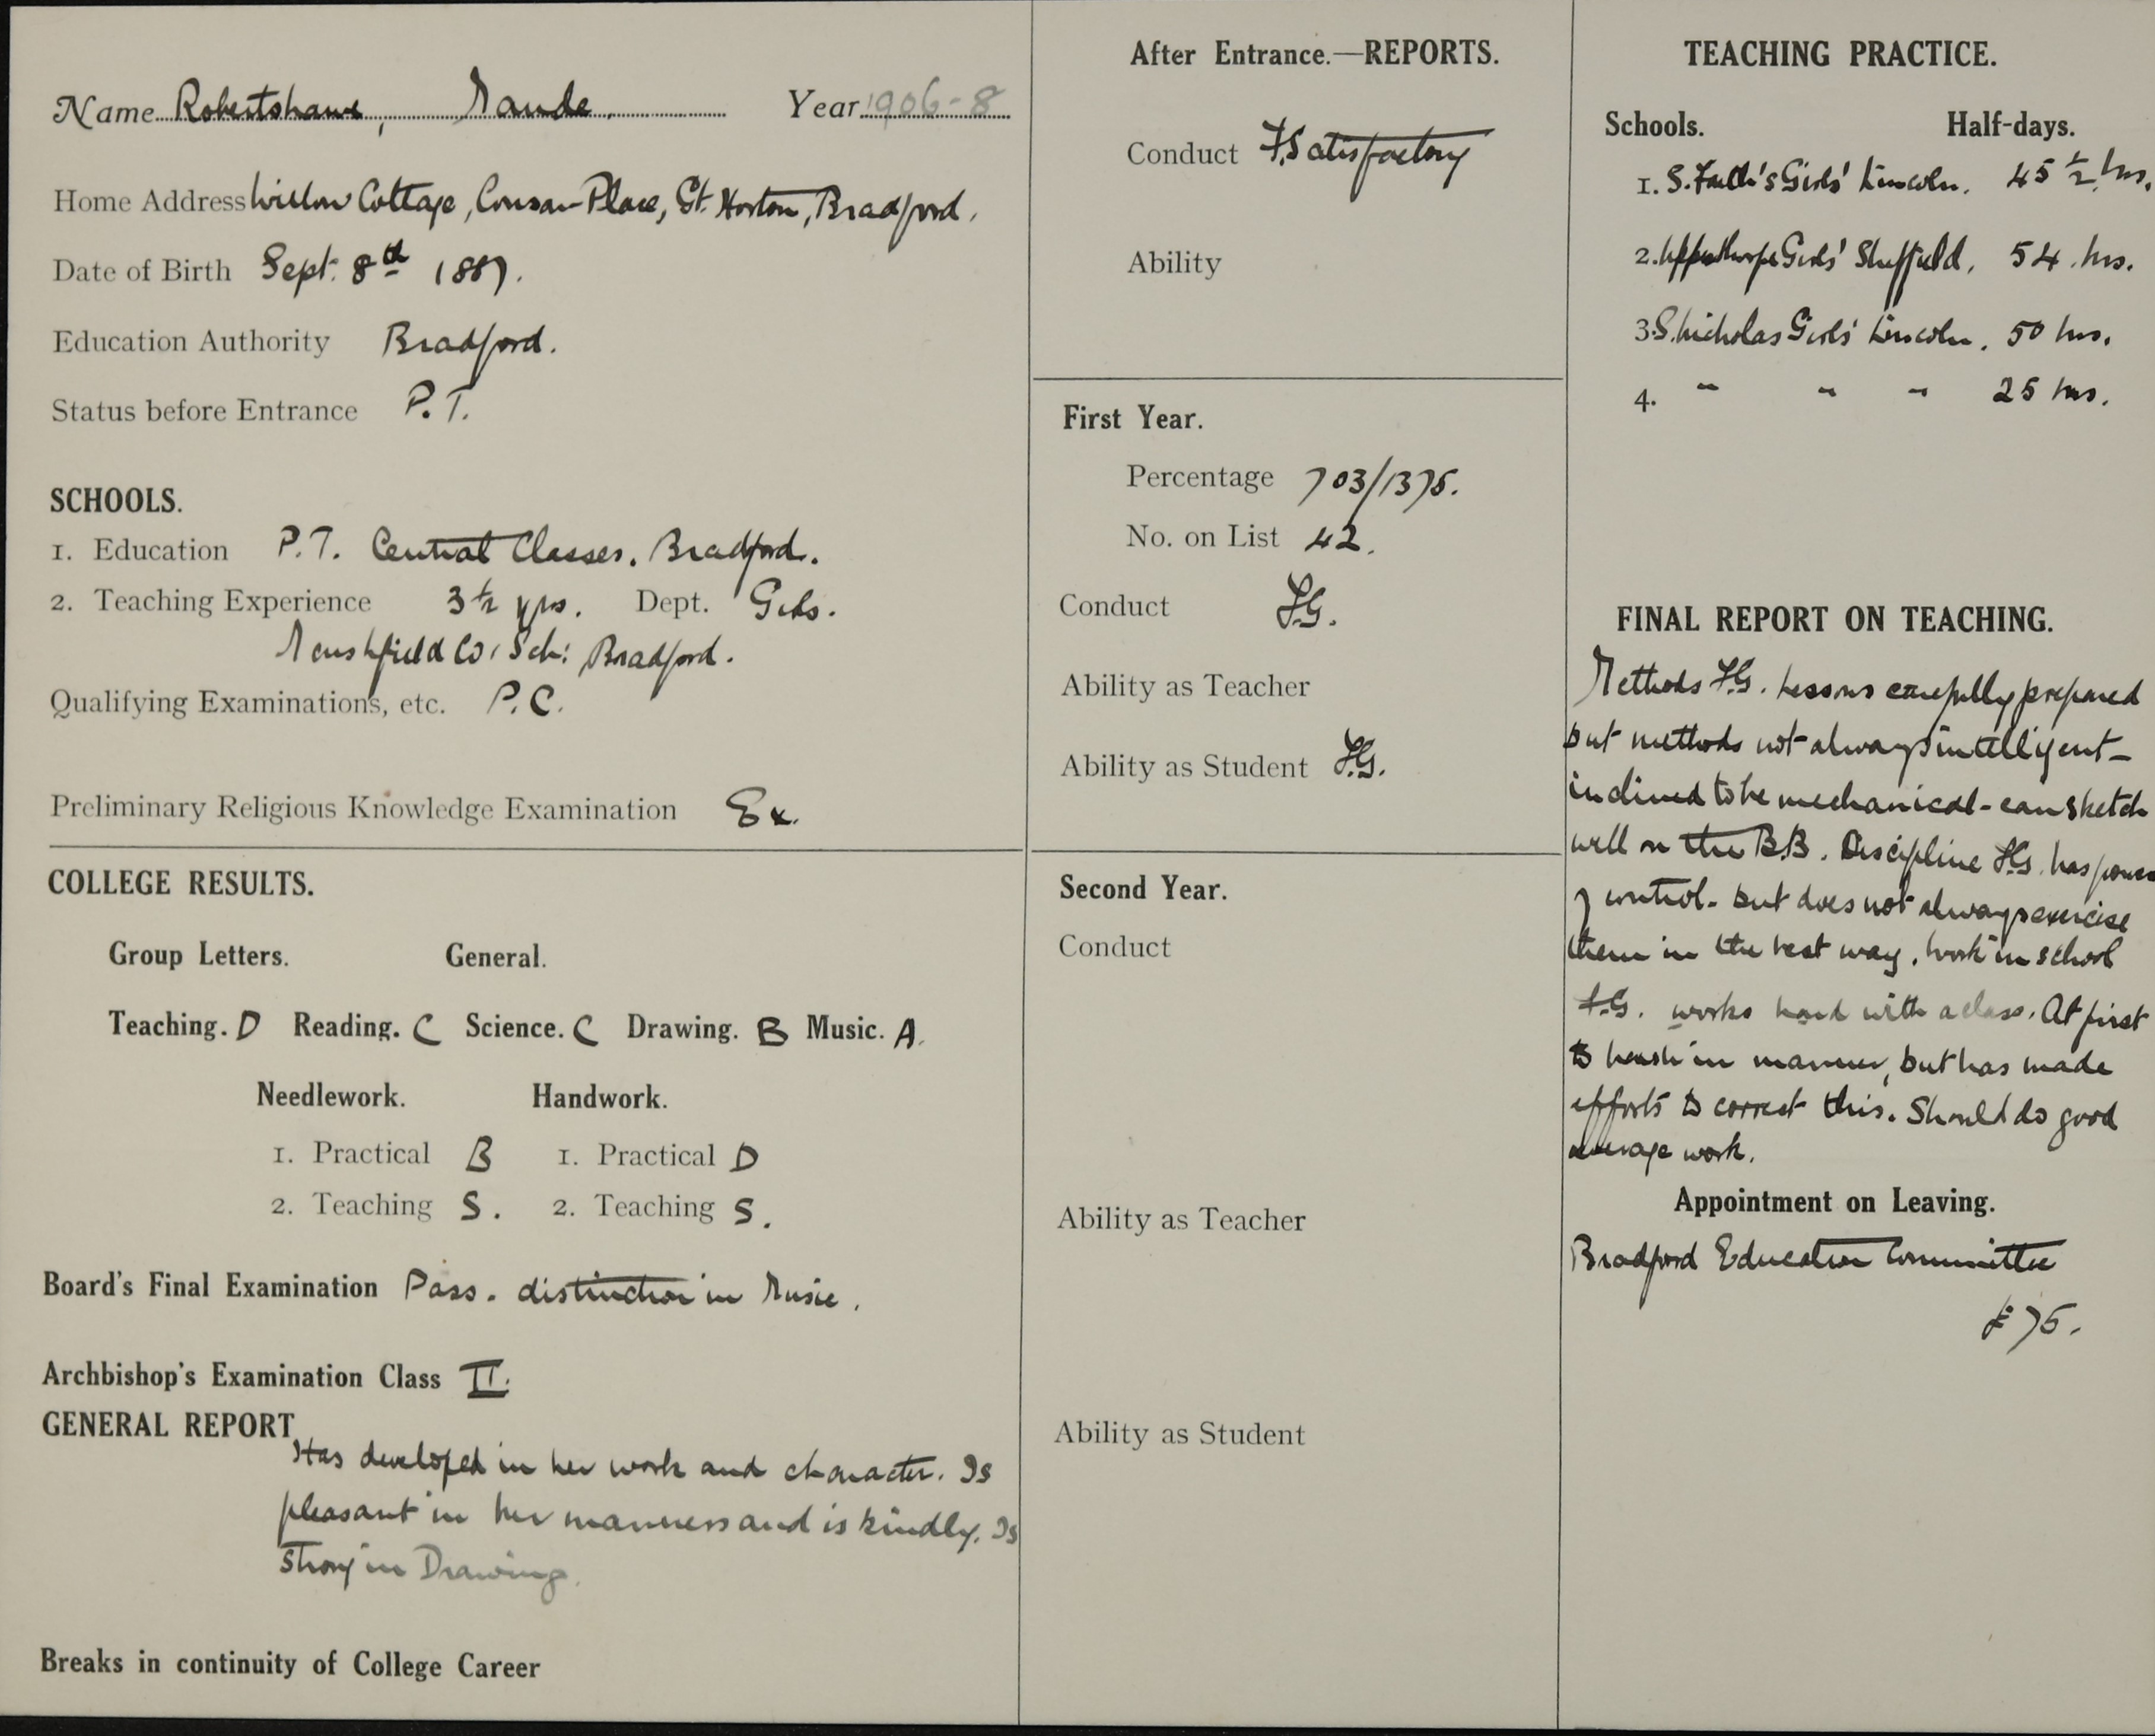 Name Robertshawe, Maude. Year 1906-8
Home Address Willow Cottage, Place, Gt. Horton, Bradford.
Date of Birth Sept. 8th 1887.
Education Authority Bradford.
Status before Entrance P.T.
SCHOOLS.
1. Education P.T. Central Classes. Bradford.
2. Teaching Experience 3½ yrs. Dept. Girls.
Co. Sch: Bradford.
Qualifying Examinations, etc. P.C.
Preliminary Religious Knowledge Examination Ex.
COLLEGE RESULTS.
Group Letters. General.
Teaching. D Reading. C Science. C Drawing. B Music. A.
Needlework. Handwork.
1. Practical B 1. Practical D
2. Teaching S. 2. Teaching S.
Board's Final Examination Pass. distinction in Music.
Archbishop's Examination Class II.
GENERAL REPORT
Has developed in her work and character. Is
pleasant in her manners and is kindly. Is
strong in Drawing.
Breaks in continuity of College Career
After Entrance.—REPORTS.
Conduct F. Satisfactory
Ability
First Year.
Percentage 703/1375.
No. on List 42.
Conduct F.G.
Ability as Teacher
Ability as Student F.G.
Second Year.
Conduct
Ability as Teacher
Ability as Student
TEACHING PRACTICE.
Schools. Half-days.
1. S. Faith's Girls' Lincoln. 45½ hrs.
2. Upperthorpe Girls' Sheffield. 54 hrs.
3. S. Nicholas Girls' Lincoln. 50 hrs.
4. " " " 25 hrs.
FINAL REPORT ON TEACHING.
Methods F.G. Lessons carefully prepared
but methods not always intelligent -
inclined to be mechanical - can sketch
well on the B.B. Discipline F.G. has power
of control - but does not always exercise
them in the best way. Work in school
F.G. works hard with a class. At first
to harsh in manner, but has made
efforts to correct this. Should do good
average work.
Appointment on Leaving.
Bradford Education Committee
£75.